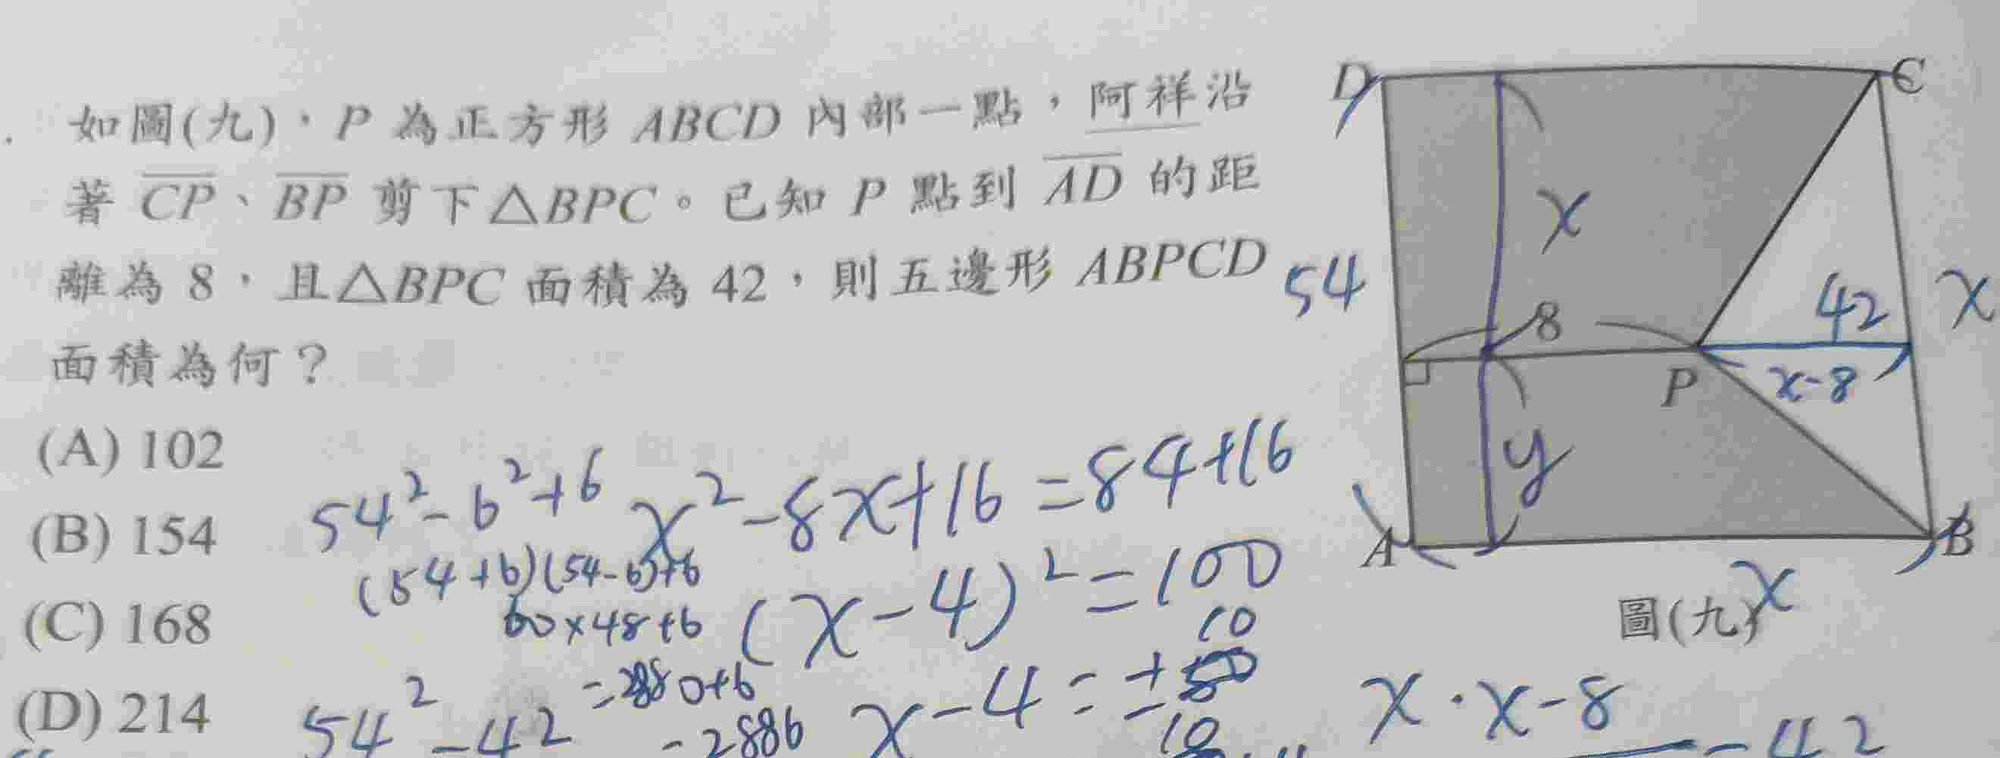 如圖(九),P 為正方形 ABCD 內部一點,阿祥沿
著 CP、BP 剪下△BPC。已知 P 點到 AD 的距
離為 8,且△BPC 面積為 42,則五邊形 ABPCD
面積為何?
(A) 102
(B) 154
(C) 168
(D) 214
54²-6²+6
(54+6)(54-6)+6
60×48+6
=2880+6
-2886
54²-42
x²-8x+16=84+16
(x-4)²=100
10
x-4=±
10
D
C
x
54
8
42
x
P
x-8
y
A
B
x
圖(九)
x·x-8
42